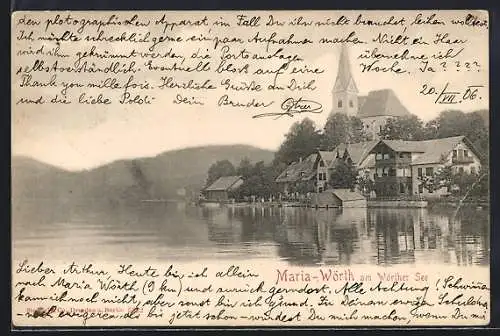 den photographischen Apparat im Fall Du ihn nicht brauchst leihen wolltest
Ich möchte schrecklich gerne ein paar Aufnahmen machen. Nicht ein Haar
wird ihm gekrümmt werden, die Portoauslagen übernehme ich
selbstverständlich. Eventuell bloß auf eine Woche. Ja ????
Thank you mille fois. Herzliche Grüße an Dich
und die liebe Poldi Dein Bruder
20. VII. 06.
Maria-Wörth am Wörther See
Lieber Arthur, Heute bin ich allein
nach Maria Wörth (9 km) und zurück gerudert. Alle Achtung!
kann ich noch nicht, aber sonst bin ich gesund. Zu Deinem
ich jetzt schon machen wenn Du mir